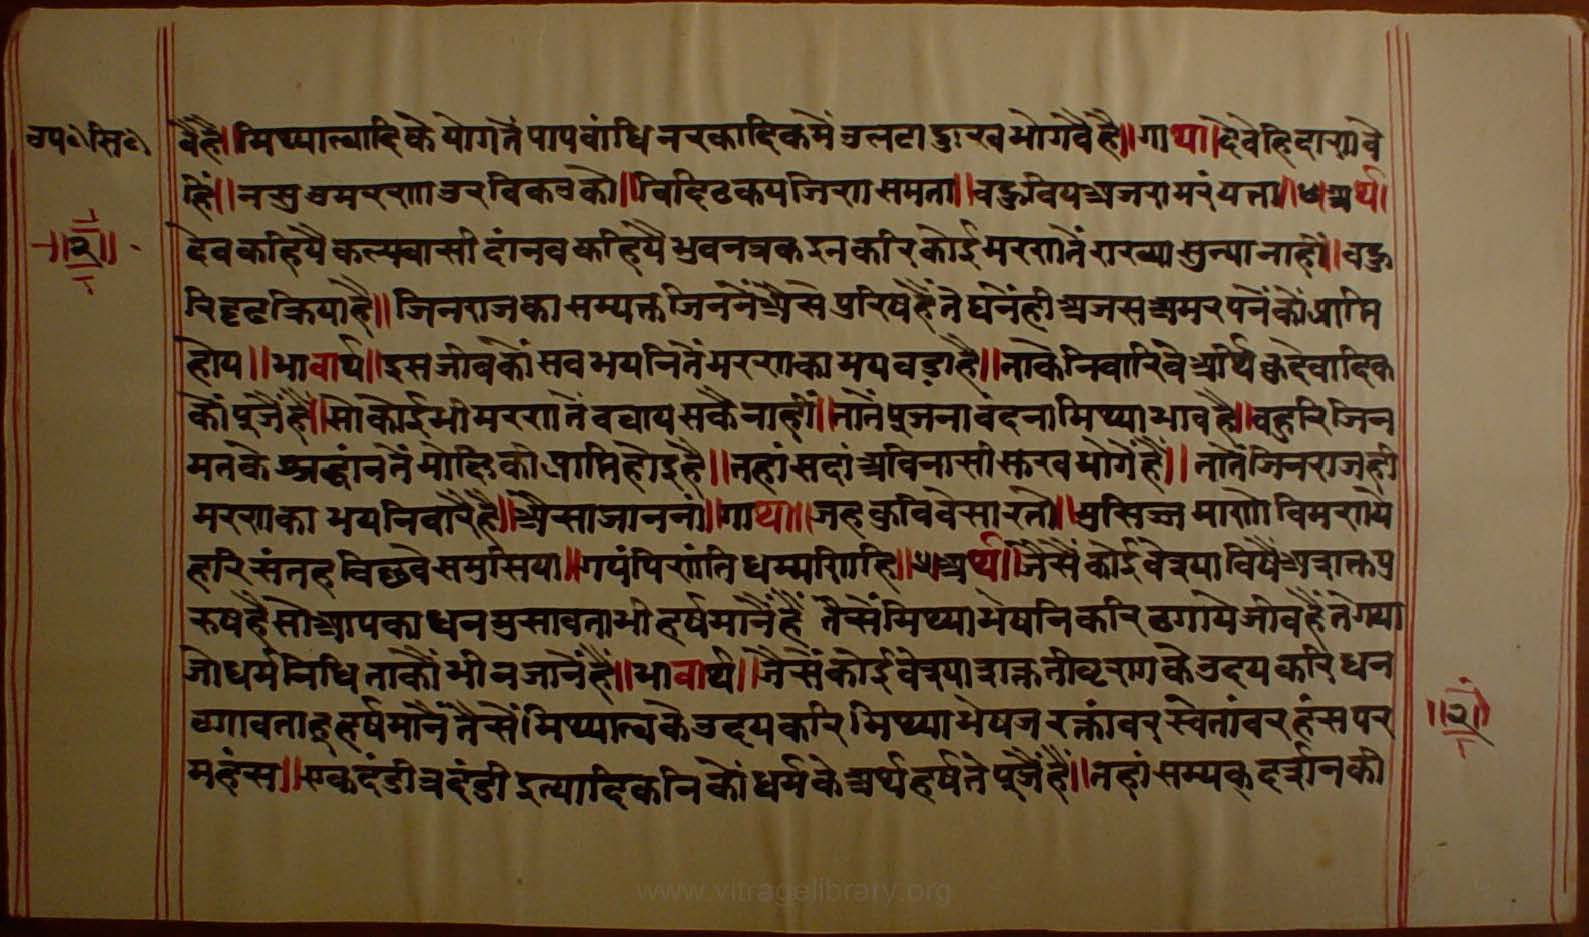 उप॰सि॰
॥२॥
वैंहै॥मिथ्यात्वादिके योगतें पापवांधि नरकादिकमें उलटा दुःख भोगवैंहै॥गाथा॥देवेहि दाणवे
हिं॥न सुउ मरणाउ रविकउ को॥वि दिढकय जिण समता॥वहुविय अजरामरं यत्ता॥४॥अर्थ॥
देव कहियै कल्पवासी दांनव कहियै भुवनत्रक इनकरि कोई मरणतें राख्या सुन्या नाहीं॥वहु
रि दृढ कियाहै॥जिनराजका सम्यक्त जिननें अैसे पुरिष हैं ते घनेंही अजर अमरपनेंकों प्राप्ति
होय॥भावार्थ॥इस जीवकों सव भयनितें मरणका भय वड़ाहै॥ताके निवारिवे अर्थि कुदेवादिक
कों पूजैंहैं॥सो कोई भी मरणतें वचाय सकै नाहीं॥तातें पूजना वंदना मिथ्याभावहै॥वहुरि जिन
मतके श्रद्धांनतें मोक्षिकी प्राप्ति होइहै॥तहां सदां अविनासी सुख भोगेंहैं॥तातें जिनराजही
मरणका भय निवारैहै॥अैसा जाननां॥गाथा॥जह कुवि वेसारतो॥मुसिज्जमाणो विमणये
हरिसं तह विछवेसमुसिया॥गयंपि णंति धम्मणिहि॥५॥अर्थ॥जैसैं कोई वेश्या विषै आशक्त पु
रुषहै सो आपका धन मुसावता भी हर्ष मानैंहैं तैसें मिथ्याभेषनिकरि ठगाये जीवहैं ते गया
जो धर्मनिधि ताकौं भी न जानेंहैं॥भावार्थ॥जैसें कोई वेश्याशक्त तीव्रराग के उदयकरि धन
ठगावता हू हर्ष मानैं तैसें मिथ्यात्वके उदयकरि मिथ्याभेष जे रक्तांवर स्वेतांवर हंस पर
महंस॥एकदंडी त्रदंडी इत्यादिकनिकों धर्मके अर्थ हर्षतें पूजैंहैं॥तहां सम्यक्दर्शनकी
॥२॥
www.vitragelibrary.org